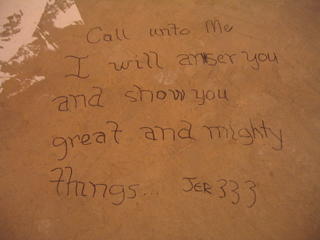 Call unto Me
I will anser you
and show you
great and mighty
things... JER 333